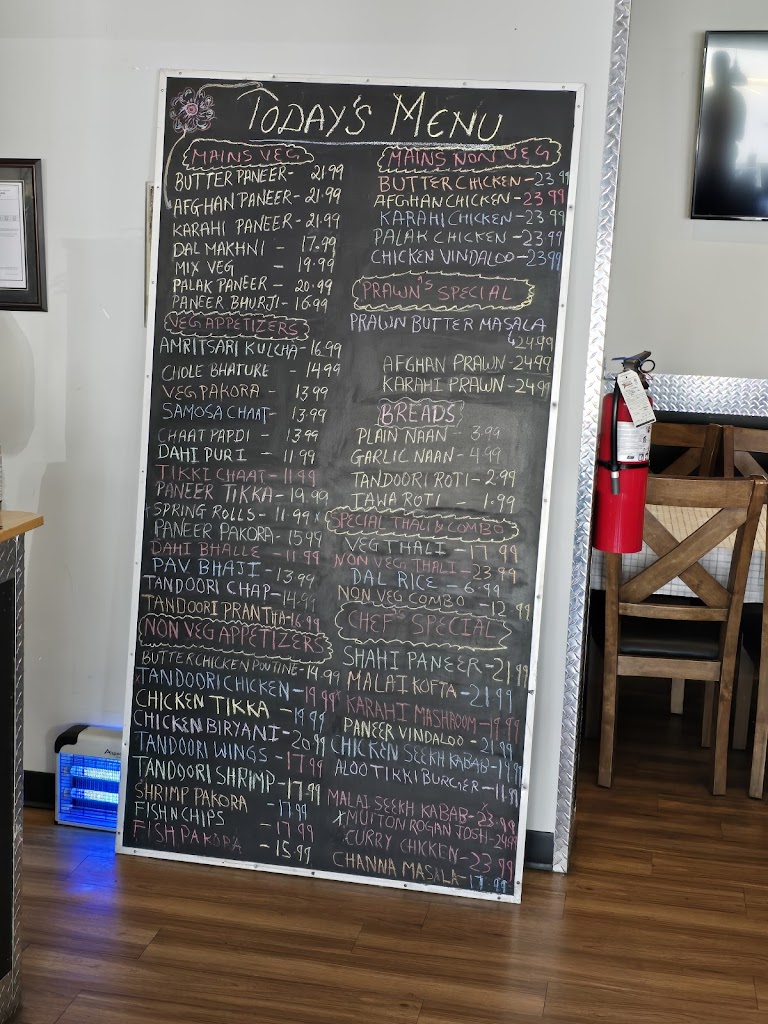 TODAY'S MENU
MAINS VEG
BUTTER PANEER- 21.99
AFGHAN PANEER- 21.99
KARAHI PANEER- 21.99
DAL MAKHNI - 17.99
MIX VEG - 19.99
PALAK PANEER - 20.99
PANEER BHURJI- 16.99
VEG APPETIZERS
AMRITSARI KULCHA- 16.99
CHOLE BHATURE - 14.99
VEG PAKORA - 13.99
SAMOSA CHAAT- 13.99
CHAAT PAPDI - 13.99
DAHI PURI - 11.99
TIKKI CHAAT- 11.99
PANEER TIKKA- 19.99
SPRING ROLLS- 11.99
PANEER PAKORA- 15.99
DAHI BHALLE - 11.99
PAV BHAJI- 13.99
TANDOORI CHAP - 14.99
TANDOORI PRANTHA-16.99
NON VEG APPETIZERS
BUTTER CHICKEN POUTINE- 14.99
TANDOORI CHICKEN- 19.99
CHICKEN TIKKA - 19.99
CHICKEN BIRYANI- 20.99
TANDOORI WINGS - 17.99
TANDOORI SHRIMP- 17.99
SHRIMP PAKORA - 17.99
FISH N CHIPS - 17.99
FISH PAKORA - 15.99
MAINS NON VEG
BUTTER CHICKEN - 23.99
AFGHAN CHICKEN- 23.99
KARAHI CHICKEN - 23.99
PALAK CHICKEN -23.99
CHICKEN VINDALOO-23.99
PRAWN'S SPECIAL
PRAWN BUTTER MASALA
↳24.99
AFGHAN PRAWN- 24.99
KARAHI PRAWN-24.99
BREADS
PLAIN NAAN - 3.99
GARLIC NAAN- 4.99
TANDOORI ROTI - 2.99
TAWA ROTI - 1.99
SPECIAL THALI & COMBO
VEG THALI - 17.99
NON VEG THALI- 23.99
DAL RICE - 6.99
NON VEG COMBO - 12.99
CHEF'S SPECIAL
SHAHI PANEER-21.99
MALAI KOFTA -21.99
KARAHI MASHROOM-19.99
PANEER VINDALOO - 21.99
CHICKEN SEEKH KABAB-19.99
ALOO TIKKI BURGER-11.99
MALAI SEEKH KABAB-23.99
MUTTON ROGAN JOSH-24.99
CURRY CHICKEN-23.99
CHANNA MASALA-17.99